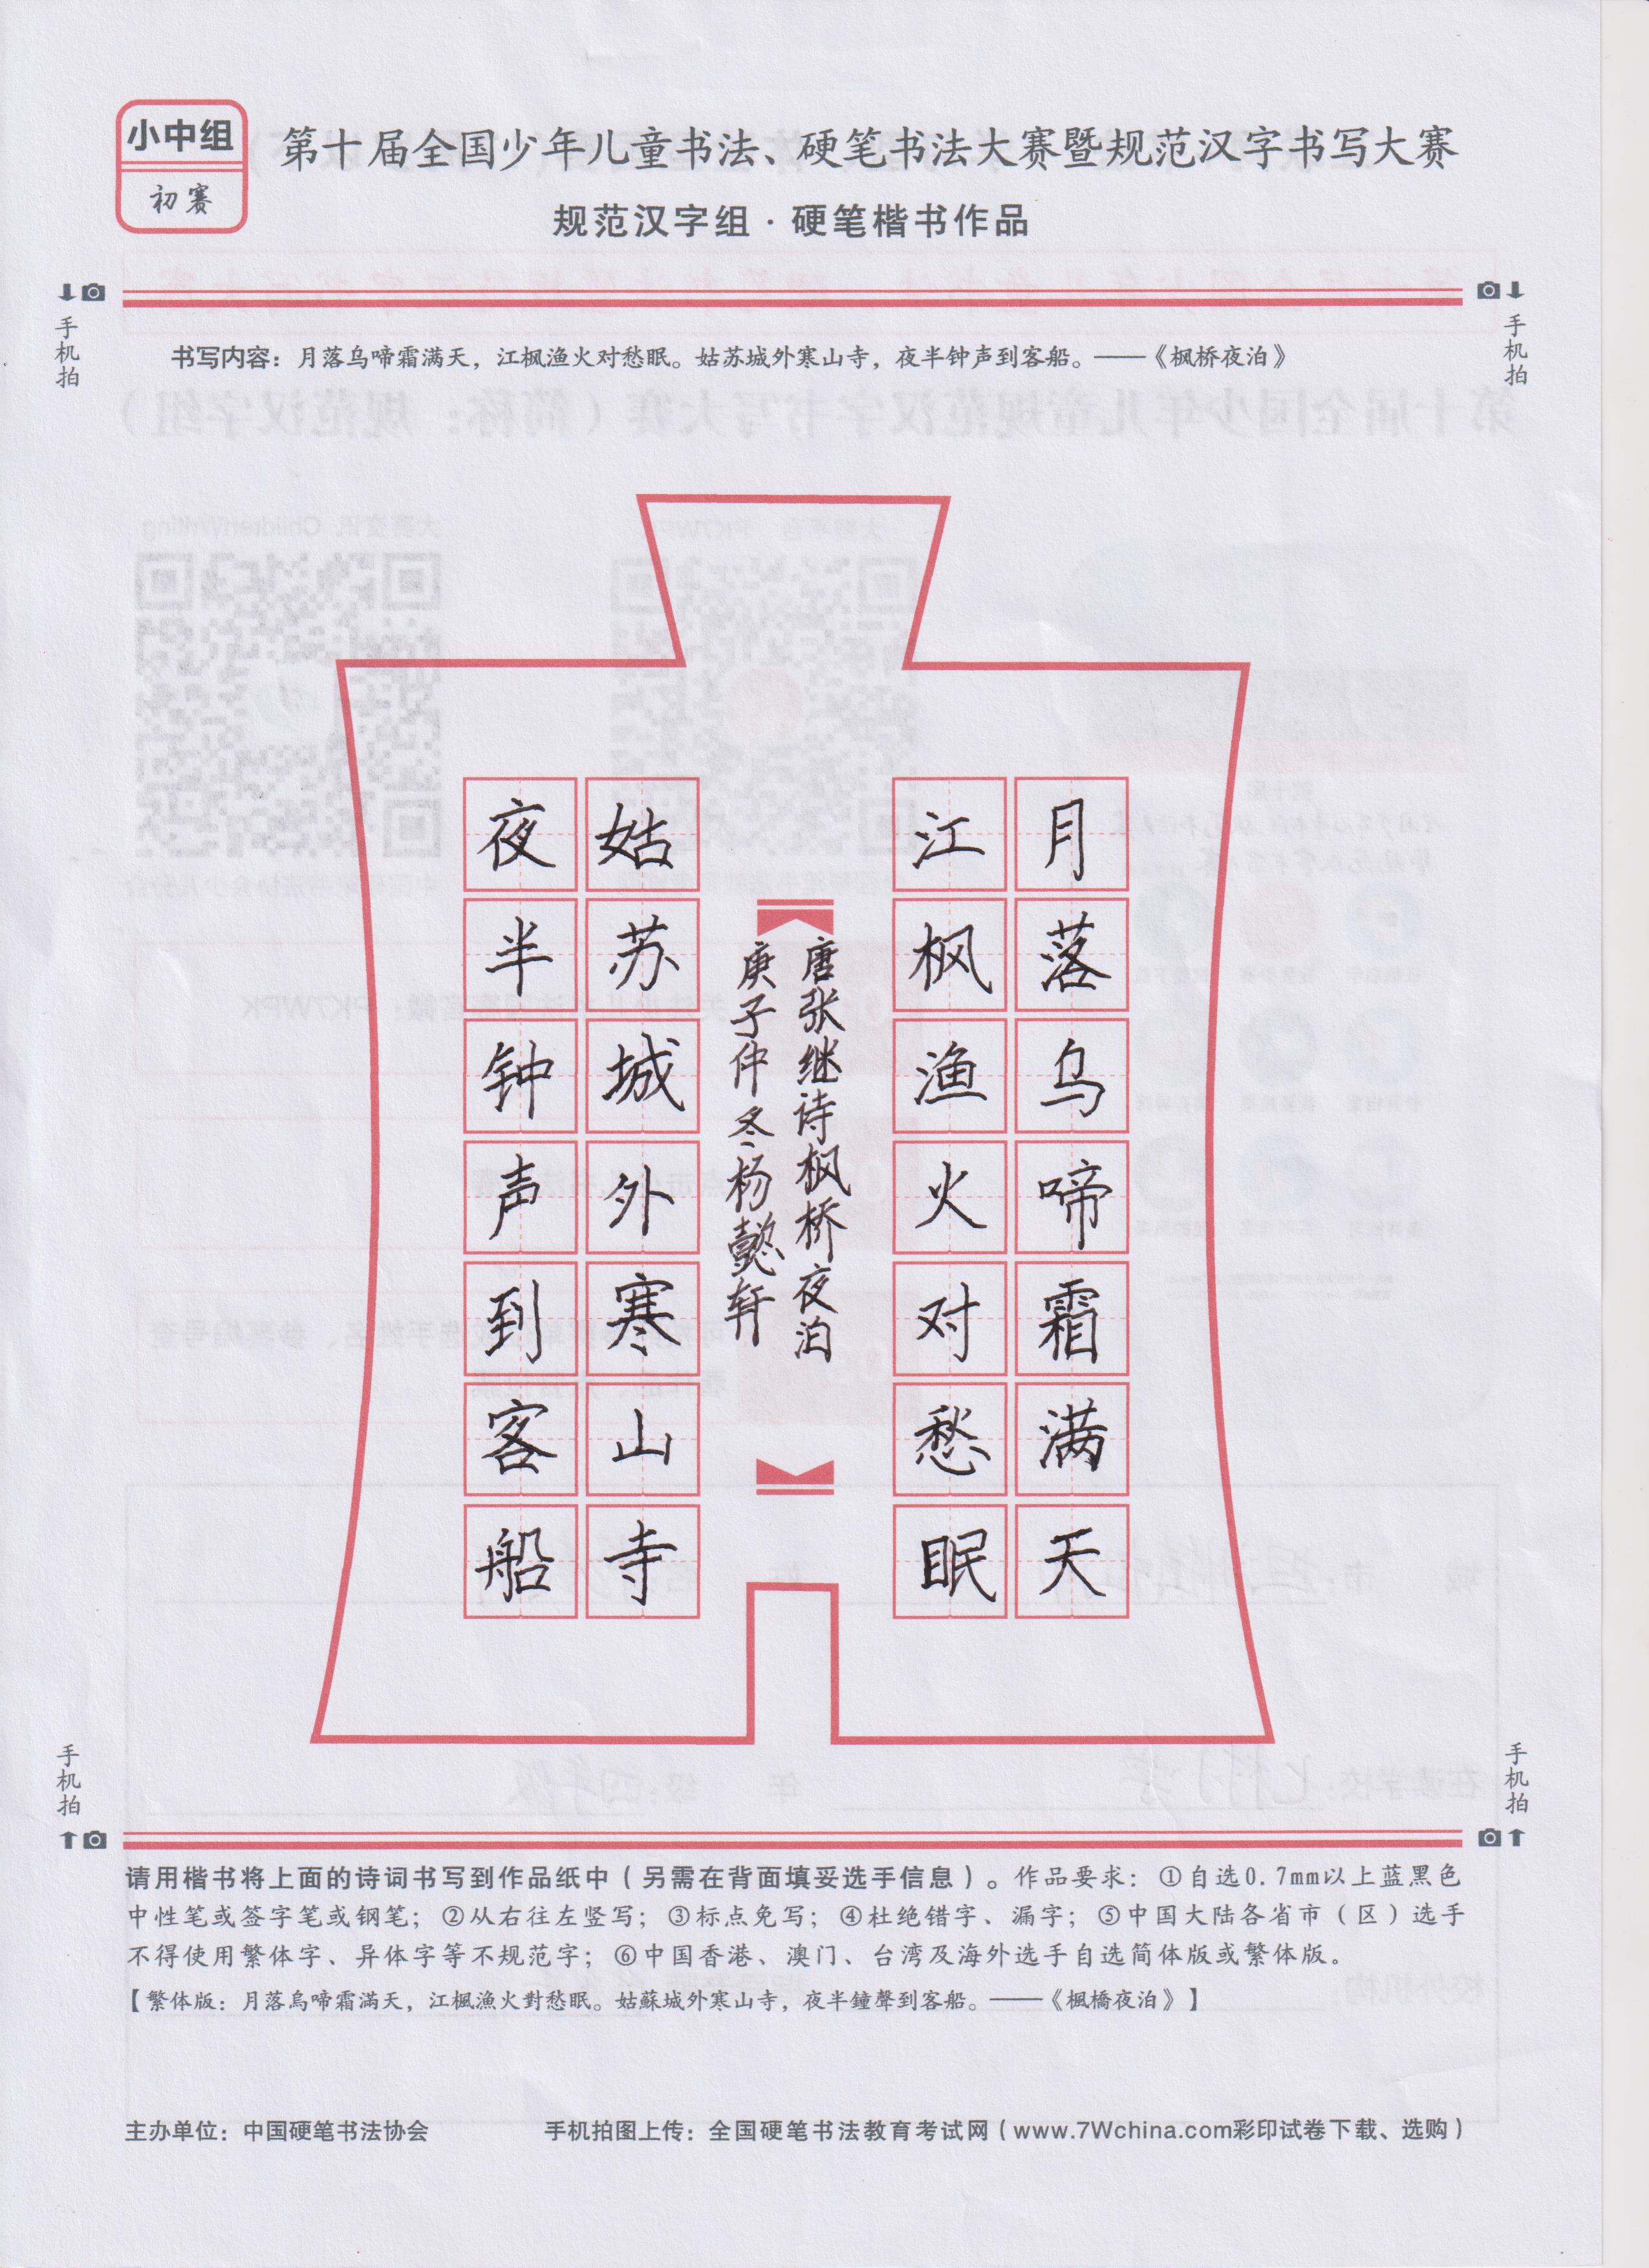 小中组
初赛
第十届全国少年儿童书法、硬笔书法大赛暨规范汉字书写大赛
规范汉字组·硬笔楷书作品
手机拍
手机拍
书写内容：月落乌啼霜满天，江枫渔火对愁眠。姑苏城外寒山寺，夜半钟声到客船。——《枫桥夜泊》
月落乌啼霜满天
江枫渔火对愁眠
唐张继诗枫桥夜泊
庚子仲冬杨懿轩
姑苏城外寒山寺
夜半钟声到客船
手机拍
手机拍
请用楷书将上面的诗词书写到作品纸中（另需在背面填妥选手信息）。作品要求：①自选0.7mm以上蓝黑色
中性笔或签字笔或钢笔；②从右往左竖写；③标点免写；④杜绝错字、漏字；⑤中国大陆各省市（区）选手
不得使用繁体字、异体字等不规范字；⑥中国香港、澳门、台湾及海外选手自选简体版或繁体版。
【繁体版：月落烏啼霜滿天，江楓漁火對愁眠。姑蘇城外寒山寺，夜半鐘聲到客船。——《楓橋夜泊》】
主办单位：中国硬笔书法协会
手机拍图上传：全国硬笔书法教育考试网（www.7Wchina.com彩印试卷下载、选购）